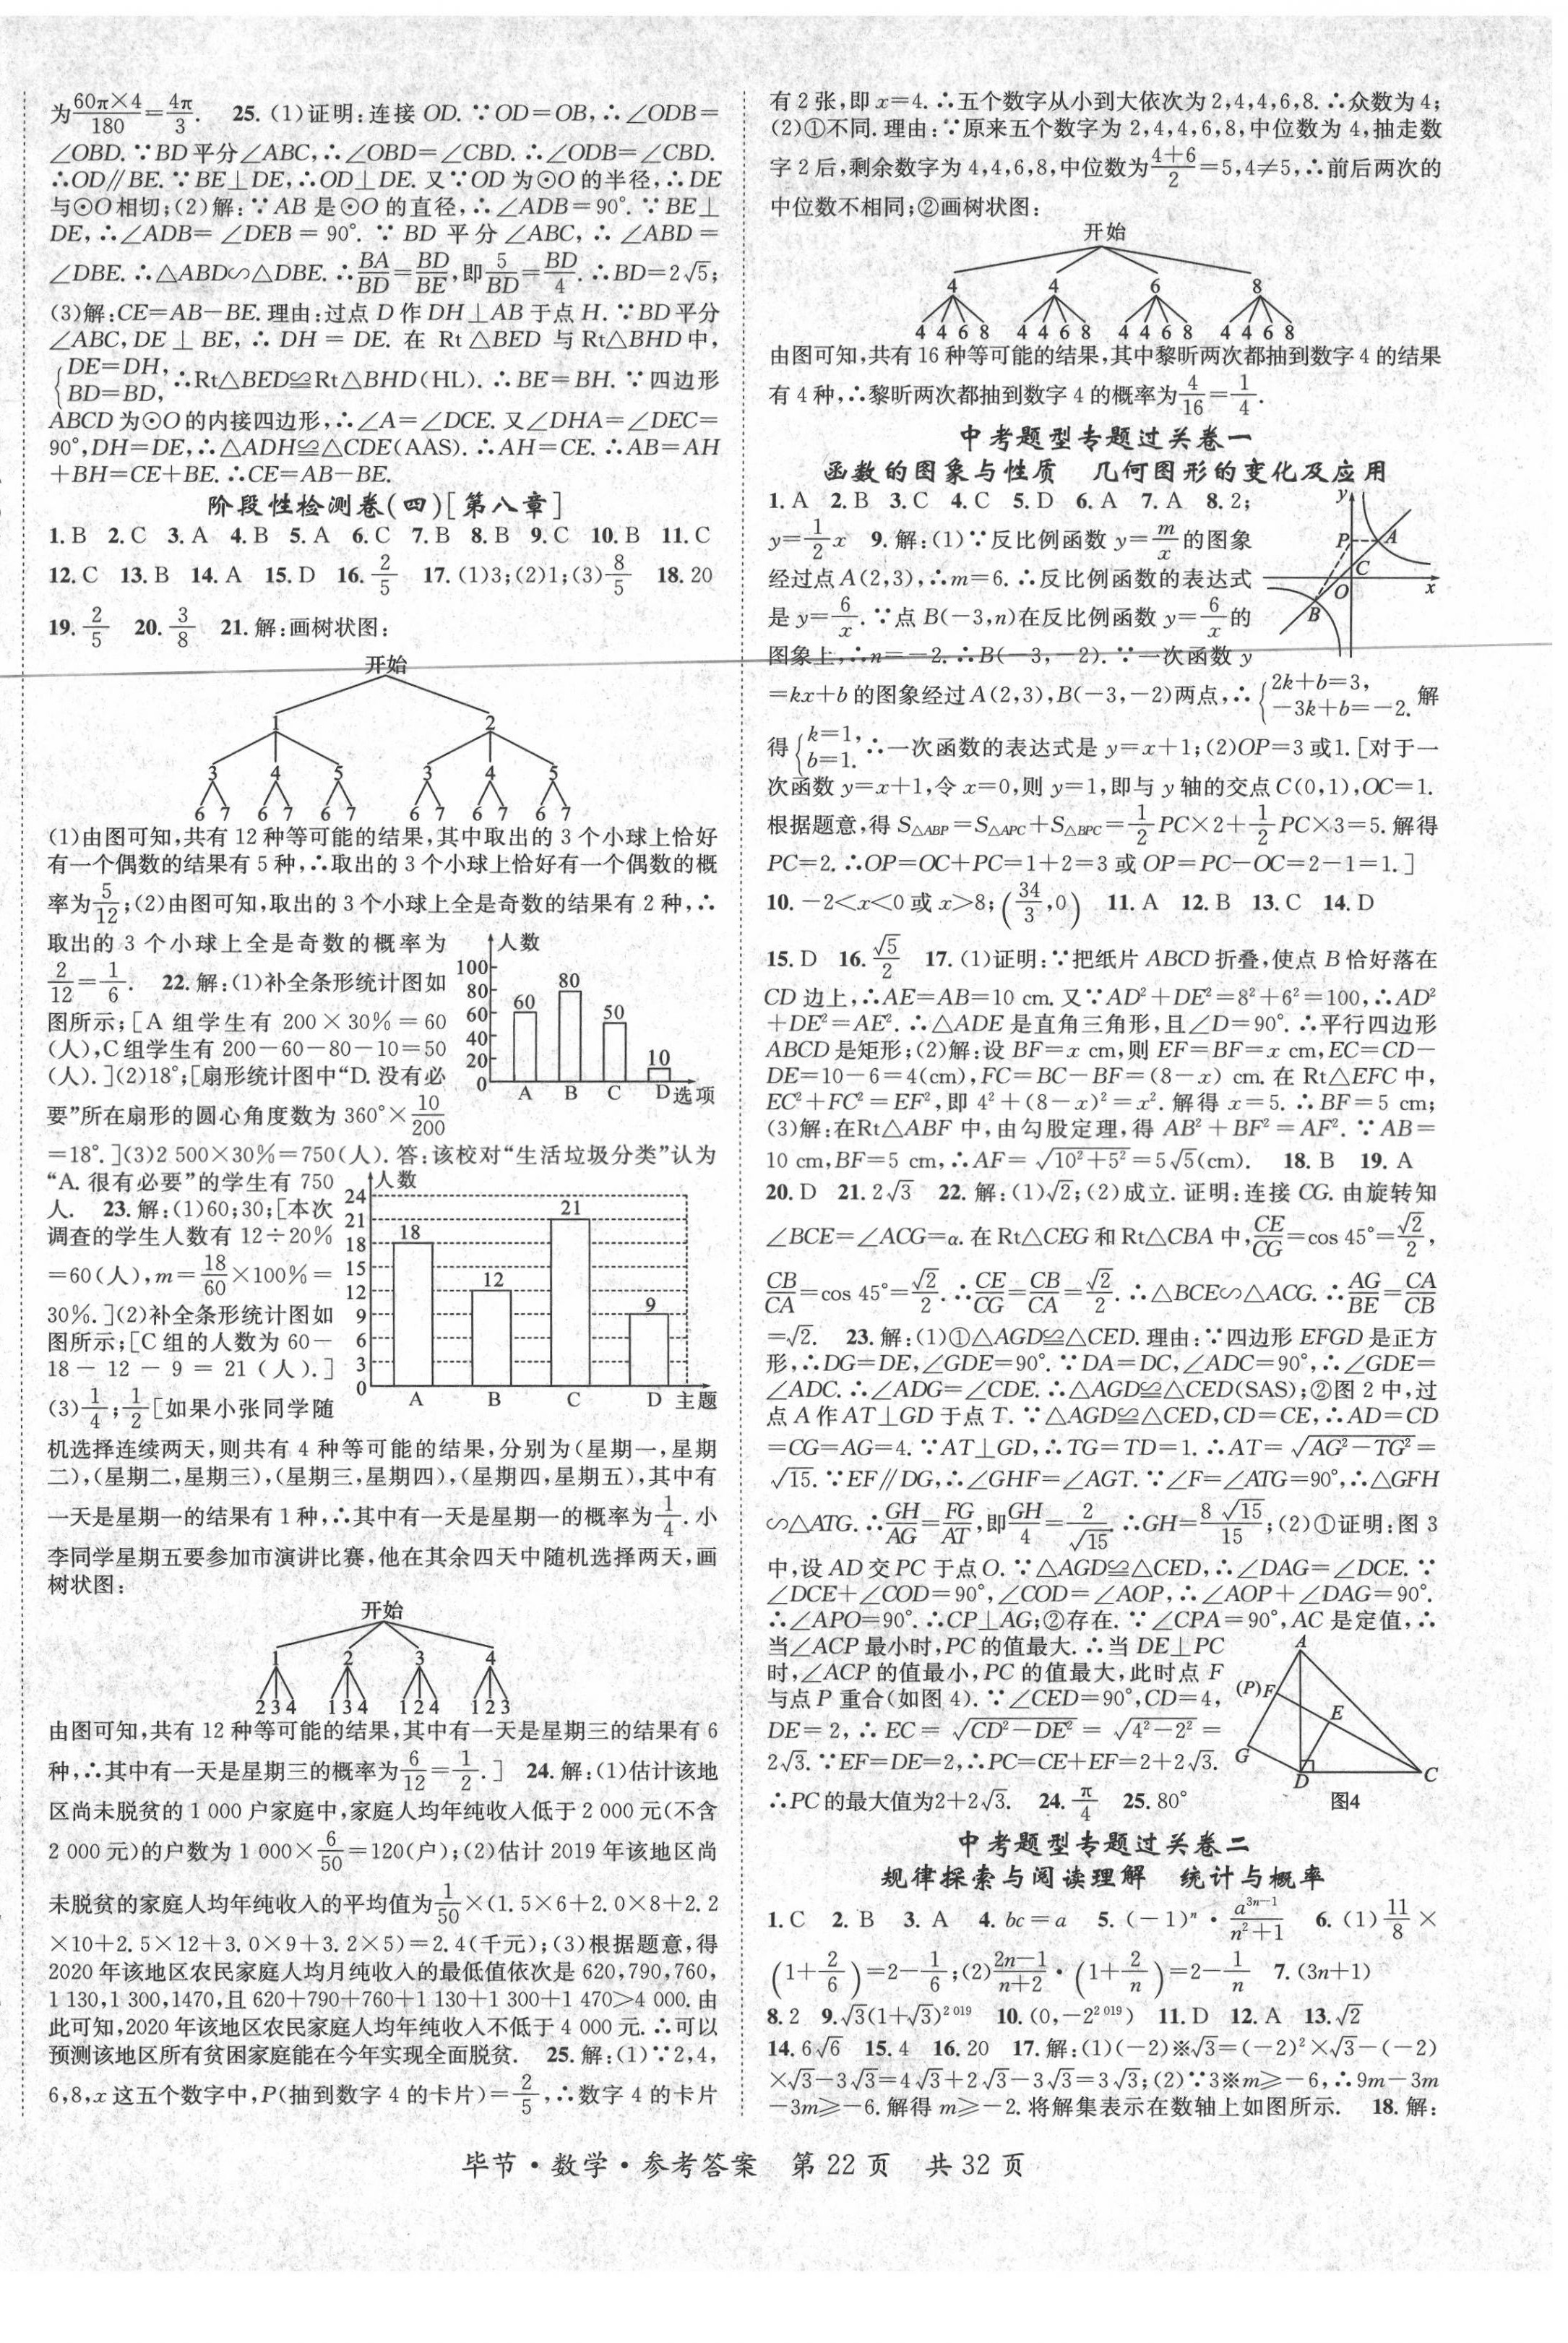 为60π×4/180=4π/3. 25. (1)证明:连接 OD. ∵OD=OB,∴∠ODB=
∠OBD. ∵BD平分∠ABC,∴∠OBD=∠CBD. ∴∠ODB=∠CBD.
∴OD∥BE. ∵BE⊥DE,∴OD⊥DE. 又∵OD 为⊙O 的半径,∴DE
与⊙O相切;(2)解:∵AB 是⊙O 的直径,∴∠ADB=90°. ∵BE⊥
DE,∴∠ADB=∠DEB=90°. ∵BD 平分∠ABC,∴∠ABD=
∠DBE. ∴△ABD∽△DBE. ∴BA/BD=BD/BE,即5/BD=BD/4. ∴BD=2√5;
(3)解:CE=AB-BE. 理由:过点 D 作 DH⊥AB 于点 H. ∵BD平分
∠ABC,DE⊥BE,∴DH=DE. 在 Rt△BED 与Rt△BHD中,
{DE=DH, BD=BD, ∴Rt△BED≌Rt△BHD(HL). ∴BE=BH. ∵四边形
ABCD为⊙O的内接四边形,∴∠A=∠DCE. 又∠DHA=∠DEC=
90°,DH=DE,∴△ADH≌△CDE(AAS). ∴AH=CE. ∴AB=AH
+BH=CE+BE. ∴CE=AB-BE.
阶段性检测卷(四)[第八章]
1. B 2. C 3. A 4. B 5. A 6. C 7. B 8. B 9. C 10. B 11. C
12. C 13. B 14. A 15. D 16. 2/5 17. (1)3;(2)1;(3)8/5 18. 20
19. 2/5 20. 3/8 21. 解:画树状图:
开始
1 2
3 4 5 3 4 5
6 7 6 7 6 7 6 7 6 7 6 7
(1)由图可知,共有12种等可能的结果,其中取出的3个小球上恰好
有一个偶数的结果有5种,∴取出的3个小球上恰好有一个偶数的概
率为5/12;(2)由图可知,取出的3个小球上全是奇数的结果有2种,∴
取出的3个小球上全是奇数的概率为
2/12=1/6. 22. 解:(1)补全条形统计图如
图所示;[A组学生有200×30%=60
(人),C组学生有200-60-80-10=50
(人). ](2)18°;[扇形统计图中“D. 没有必
要”所在扇形的圆心角度数为360°×10/200
人数
100
80
60
40
20
0
60 80 50 10
A B C D选项
=18°. ](3)2 500×30%=750(人). 答:该校对“生活垃圾分类”认为
“A. 很有必要”的学生有750
人. 23. 解:(1)60;30;[本次
调查的学生人数有12÷20%
=60(人),m=18/60×100%=
30%. ](2)补全条形统计图如
图所示;[C组的人数为60-
18-12-9=21(人). ]
(3)1/4;1/2[如果小张同学随
人数
24
21
18
15
12
9
6
3
0
18 12 21 9
A B C D 主题
机选择连续两天,则共有4种等可能的结果,分别为(星期一,星期
二),(星期二,星期三),(星期三,星期四),(星期四,星期五),其中有
一天是星期一的结果有1种,∴其中有一天是星期一的概率为1/4. 小
李同学星期五要参加市演讲比赛,他在其余四天中随机选择两天,画
树状图:
开始
1 2 3 4
2 3 4 1 3 4 1 2 4 1 2 3
由图可知,共有12种等可能的结果,其中有一天是星期三的结果有6
种,∴其中有一天是星期三的概率为6/12=1/2. ] 24. 解:(1)估计该地
区尚未脱贫的1 000户家庭中,家庭人均年纯收入低于2 000元(不含
2 000元)的户数为1 000×6/50=120(户);(2)估计2019年该地区尚
未脱贫的家庭人均年纯收入的平均值为1/50×(1.5×6+2.0×8+2.2
×10+2.5×12+3.0×9+3.2×5)=2.4(千元);(3)根据题意,得
2020年该地区农民家庭人均月纯收入的最低值依次是620,790,760,
1 130,1 300,1470,且620+790+760+1 130+1 300+1 470>4 000. 由
此可知,2020年该地区农民家庭人均年纯收入不低于4 000元. ∴可以
预测该地区所有贫困家庭能在今年实现全面脱贫. 25. 解:(1)∵2,4,
6,8,x这五个数字中,P(抽到数字4的卡片)=2/5,∴数字4的卡片
有2张,即x=4. ∴五个数字从小到大依次为2,4,4,6,8. ∴众数为4;
(2)①不同. 理由:∵原来五个数字为2,4,4,6,8,中位数为4,抽走数
字2后,剩余数字为4,4,6,8,中位数为4+6/2=5,4≠5,∴前后两次的
中位数不相同;②画树状图:
开始
4 4 6 8
4 4 6 8 4 4 6 8 4 4 6 8 4 4 6 8
由图可知,共有16种等可能的结果,其中黎昕两次都抽到数字4的结果
有4种,∴黎昕两次都抽到数字4的概率为4/16=1/4.
中考题型专题过关卷一
函数的图象与性质 几何图形的变化及应用
1. A 2. B 3. C 4. C 5. D 6. A 7. A 8. 2;
y=1/2x 9. 解:(1)∵反比例函数 y=m/x 的图象
经过点A(2,3),∴m=6. ∴反比例函数的表达式
是 y=6/x. ∵点B(-3,n)在反比例函数 y=6/x的
图象上,∴n=-2. ∴B(-3,-2). ∵一次函数 y
y P A C O x B
=kx+b的图象经过A(2,3),B(-3,-2)两点,∴{2k+b=3, -3k+b=-2. 解
得{k=1, b=1. ∴一次函数的表达式是 y=x+1;(2)OP=3或1. [对于一
次函数y=x+1,令x=0,则y=1,即与y轴的交点C(0,1),OC=1.
根据题意,得S△ABP=S△APC+S△BPC=1/2PC×2+1/2PC×3=5. 解得
PC=2. ∴OP=OC+PC=1+2=3或OP=PC-OC=2-1=1. ]
10. -2<x<0或x>8;(34/3,0) 11. A 12. B 13. C 14. D
15. D 16. √5/2 17. (1)证明:∵把纸片ABCD折叠,使点B恰好落在
CD边上,∴AE=AB=10 cm. 又∵AD²+DE²=8²+6²=100,∴AD²
+DE²=AE². ∴△ADE是直角三角形,且∠D=90°. ∴平行四边形
ABCD是矩形;(2)解:设BF=x cm,则EF=BF=x cm,EC=CD-
DE=10-6=4(cm),FC=BC-BF=(8-x) cm. 在Rt△EFC中,
EC²+FC²=EF²,即4²+(8-x)²=x². 解得x=5. ∴BF=5 cm;
(3)解:在Rt△ABF中,由勾股定理,得AB²+BF²=AF². ∵AB=
10 cm,BF=5 cm,∴AF=√(10²+5²)=5√5(cm). 18. B 19. A
20. D 21. 2√3 22. 解:(1)√2;(2)成立. 证明:连接CG. 由旋转知
∠BCE=∠ACG=α. 在Rt△CEG和Rt△CBA中,CE/CG=cos 45°=√2/2,
CB/CA=cos 45°=√2/2. ∴CE/CG=CB/CA=√2/2. ∴△BCE∽△ACG. ∴AG/BE=CA/CB
=√2. 23. 解:(1)①△AGD≌△CED. 理由:∵四边形EFGD是正方
形,∴DG=DE,∠GDE=90°. ∵DA=DC,∠ADC=90°,∴∠GDE=
∠ADC. ∴∠ADG=∠CDE. ∴△AGD≌△CED(SAS);②图2中,过
点A作AT⊥GD于点T. ∵△AGD≌△CED,CD=CE,∴AD=CD
=CG=AG=4. ∵AT⊥GD,∴TG=TD=1. ∴AT=√(AG²-TG²)=
√15. ∵EF∥DG,∴∠GHF=∠AGT. ∵∠F=∠ATG=90°,∴△GFH
∽△ATG. ∴GH/AG=FG/AT,即GH/4=2/√15. ∴GH=8√15/15;(2)①证明:图3
中,设AD交PC于点O. ∵△AGD≌△CED,∴∠DAG=∠DCE. ∵
∠DCE+∠COD=90°,∠COD=∠AOP,∴∠AOP+∠DAG=90°.
∴∠APO=90°. ∴CP⊥AG;②存在. ∵∠CPA=90°,AC是定值,∴
当∠ACP最小时,PC的值最大. ∴当DE⊥PC
时,∠ACP的值最小,PC的值最大,此时点F
与点P重合(如图4). ∵∠CED=90°,CD=4,
DE=2,∴EC=√(CD²-DE²)=√(4²-2²)=
2√3. ∵EF=DE=2,∴PC=CE+EF=2+2√3.
∴PC的最大值为2+2√3. 24. π/4 25. 80°
A (P)F E G D C
图4
中考题型专题过关卷二
规律探索与阅读理解 统计与概率
1. C 2. B 3. A 4. bc=a 5. (-1)ⁿ·a³ⁿ⁻¹/(n²+1) 6. (1)11/8×
(1+2/6)=2-1/6;(2)(2n-1)/(n+2)·(1+2/n)=2-1/n 7. (3n+1)
8. 2 9. √3(1+√3)²⁰¹⁹ 10. (0,-2²⁰¹⁹) 11. D 12. A 13. √2
14. 6√6 15. 4 16. 20 17. 解:(1)(-2)※√3=(-2)²×√3-(-2)
×√3-3√3=4√3+2√3-3√3=3√3;(2)∵3※m≥-6,∴9m-3m
-3m≥-6. 解得m≥-2. 将解集表示在数轴上如图所示. 18. 解:
毕节·数学·参考答案 第22页 共32页